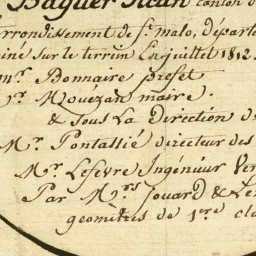 Baguer Pican canton d
rrondissement de St. malo, départe
iné sur le terrein En juillet 1812.
mr. Bonnaire préfet
r. Mouëzan maire.
& sous La direction de
Mr. Pontallié directeur des
Mr. Lefevre Ingénieur Ver
Par Mrs Jouard & Le
geometres de 1ere cla